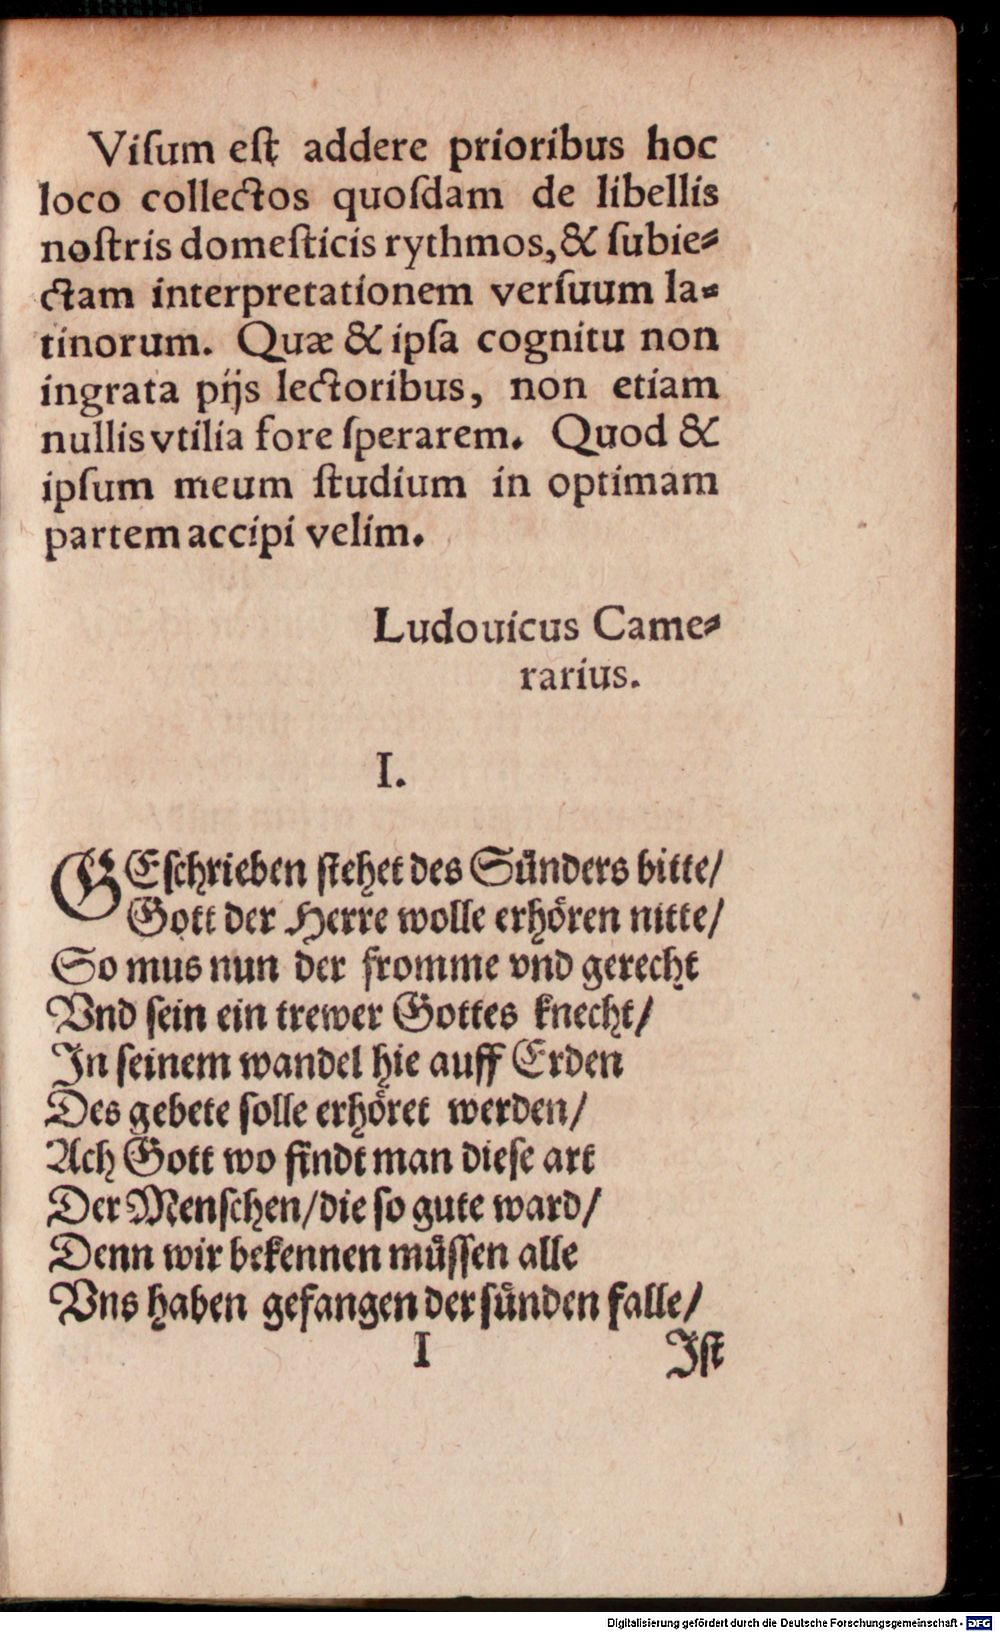 Viſum eſt addere prioribus hoc
loco collectos quoſdam de libellis
noſtris domeſticis rythmos, & ſubie⸗
ctam interpretationem verſuum la⸗
tinorum. Quæ & ipſa cognitu non
ingrata pijs lectoribus, non etiam
nullis vtilia fore ſperarem. Quod &
ipſum meum ſtudium in optimam
partem accipi velim.
Ludouicus Came⸗
rarius.
I.
GEſchrieben ſtehet des Sünders bitte/
Gott der Herre wolle erhören nitte/
So mus nun der fromme vnd gerecht
Vnd ſein ein trewer Gottes knecht/
In ſeinem wandel hie auff Erden
Des gebete ſolle erhöret werden/
Ach Gott wo findt man dieſe art
Der Menſchen/die ſo gute ward/
Denn wir bekennen müſſen alle
Vns haben gefangen der ſünden falle/
I
Iſt
Digitalisierung gefördert durch die Deutsche Forschungsgemeinschaft - DFG